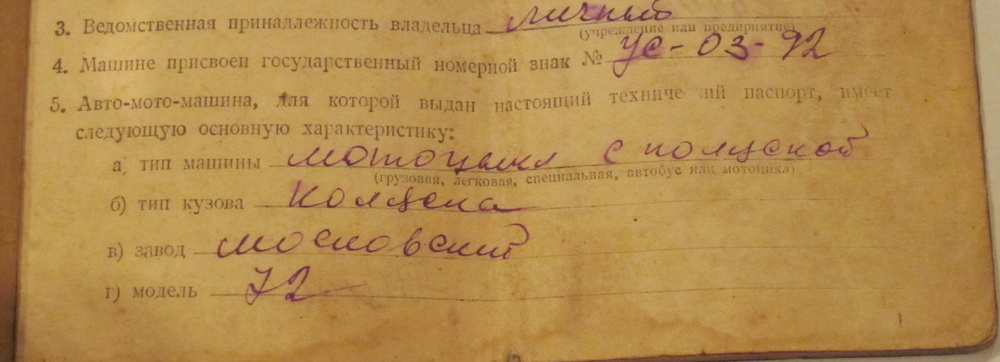 3. Ведомственная принадлежность владельца личный
(учреждение или предприятие)
4. Машине присвоен государственный номерной знак № УС-03-92
5. Авто-мото-машина, для которой выдан настоящий технический паспорт, имеет
следующую основную характеристику:
а) тип машины мотоцикл с коляской
(грузовая, легковая, специальная, автобус или мотоцикл)
б) тип кузова коляска
в) завод московский
г) модель 72